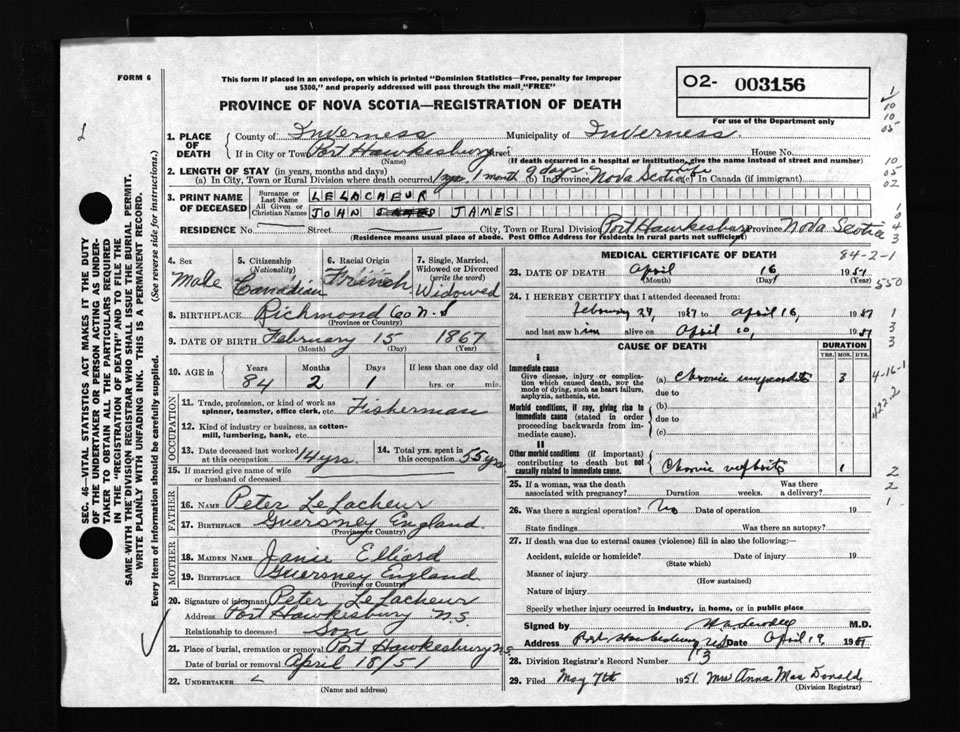 FORM 6
This form if placed in an envelope, on which is printed "Dominion Statistics—Free, penalty for improper
use $300," and properly addressed will pass through the mail "FREE"
O2- 003156
PROVINCE OF NOVA SCOTIA—REGISTRATION OF DEATH
For use of the Department only
1. PLACE OF DEATH County of Inverness Municipality of Inverness
If in City or Town Port Hawkesbury Street House No.
(Name) (If death occurred in a hospital or institution, give the name instead of street and number)
2. LENGTH OF STAY (in years, months and days)
(a) In City, Town or Rural Division where death occurred 1 yr. 1 month 9 days. (b) In Province Nova Scotia life (c) In Canada (if immigrant)
3. PRINT NAME OF DECEASED Surname or Last Name LELACHEUR
All Given or Christian Names JOHN JAMES JAMES
RESIDENCE No. Street City, Town or Rural Division Port Hawkesbury Province Nova Scotia
(Residence means usual place of abode. Post Office Address for residents in rural parts not sufficient)
4. Sex Male
5. Citizenship (Nationality) Canadian
6. Racial Origin French
7. Single, Married, Widowed or Divorced (write the word) Widowed
8. BIRTHPLACE Richmond Co N.S
(Province or Country)
9. DATE OF BIRTH February 15 1867
(Month) (Day) (Year)
10. AGE in Years Months Days If less than one day old
84 2 1 hrs. or min.
OCCUPATION
11. Trade, profession, or kind of work as spinner, teamster, office clerk, etc. Fisherman
12. Kind of industry or business, as cotton-mill, lumbering, bank, etc.
13. Date deceased last worked at this occupation 14 yrs.
14. Total yrs. spent in this occupation 55 yrs
15. If married give name of wife or husband of deceased
FATHER
16. NAME Peter Le Lacheur
17. BIRTHPLACE Guersney England.
(Province or Country)
MOTHER
18. MAIDEN NAME Janie Elliard
19. BIRTHPLACE Guersney England
(Province or Country)
20. Signature of informant Peter Le Lacheur
Address Port Hawkesbury N.S.
Relationship to deceased Son
21. Place of burial, cremation or removal Port Hawkesbury NS
Date of burial or removal April 18/51
22. UNDERTAKER
(Name and address)
MEDICAL CERTIFICATE OF DEATH
84-2-1
23. DATE OF DEATH April 16 1951
(Month) (Day) (Year)
550
24. I HEREBY CERTIFY that I attended deceased from:
19 to April 16, 19
and last saw him alive on April 10, 19
CAUSE OF DEATH DURATION
YRS. MOS. DYS.
I
Immediate cause
Give disease, injury or complication which caused death, not the mode of dying, such as heart failure, asphyxia, asthenia, etc.
(a) Chronic 3
due to
4-16-1
Morbid conditions, if any, giving rise to immediate cause (stated in order proceeding backwards from immediate cause).
(b)
due to
(c)
422.2
II
Other morbid conditions (if important) contributing to death but not causally related to immediate cause.
Chronic 1
25. If a woman, was the death associated with pregnancy? Duration weeks. Was there a delivery?
26. Was there a surgical operation? No Date of operation 19
State findings Was there an autopsy?
27. If death was due to external causes (violence) fill in also the following:—
Accident, suicide or homicide? Date of injury 19
(State which)
Manner of injury
(How sustained)
Nature of injury
Specify whether injury occurred in industry, in home, or in public place
Signed by M.D.
Address Port Hawkesbury NS Date April 19, 19
28. Division Registrar's Record Number 13
29. Filed May 7th 1951 Mrs Anna Mac Donald
(Division Registrar)
SEC. 46—VITAL STATISTICS ACT MAKES IT THE DUTY
OF THE UNDERTAKER OR PERSON ACTING AS UNDER-
TAKER TO OBTAIN ALL THE PARTICULARS REQUIRED
IN THE "REGISTRATION OF DEATH" AND TO FILE THE
SAME WITH THE DIVISION REGISTRAR WHO SHALL ISSUE THE BURIAL PERMIT.
WRITE PLAINLY WITH UNFADING INK. THIS IS A PERMANENT RECORD.
Every item of information should be carefully supplied. (See reverse side for instructions.)